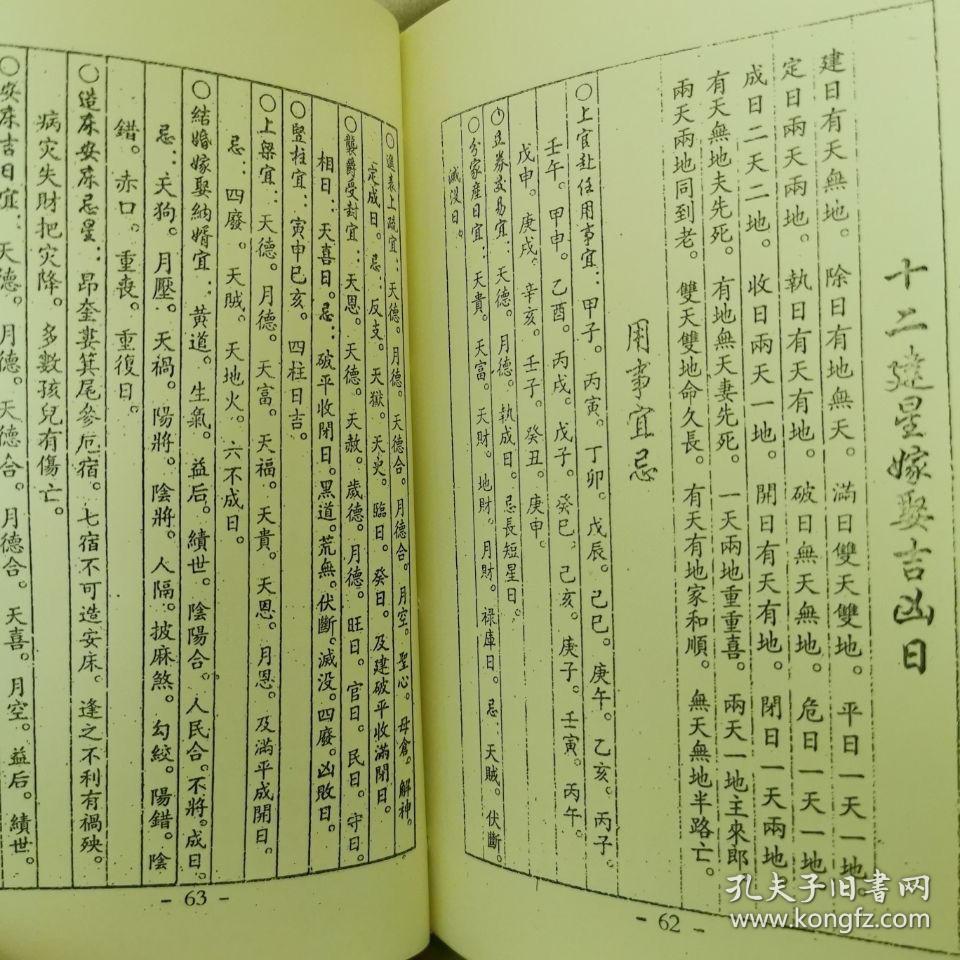 十二建星嫁娶吉凶日
建日有天無地。除日有地無天。滿日雙天雙地。平日一天一地
定日兩天兩地。執日有天有地。破日無天無地。危日一天一地
成日二天二地。收日兩天一地。開日有天有地。閉日一天兩地。
有天無地夫先死。有地無天妻先死。一天兩地重重喜。兩天一地主來郎
兩天兩地同到老。雙天雙地命久長。有天有地家和順。無天無地半路亡。
用事宜忌
○上官赴任用事宜：甲子。丙寅。丁卯。戊辰。己巳。庚午。乙亥。丙子。
壬午。甲申。乙酉。丙戌。戊子。癸巳。己亥。庚子。壬寅。丙午。
戊申。庚戌。辛亥。壬子。癸丑。庚申。
○立券交易宜：天德。月德。執成日。忌長短星日。
○分家産日宜：天貴。天富。天財。地財。月財。禄庫日。忌、天賊。伏斷。
滅没日。
- 62 -
○進表上疏宜：天德。月德。天德合。月德合。月空。聖心。母倉。解神。
定成日。忌：反支。天獄。天吏。臨日。癸日。及建破平收滿閉日。
○襲爵受封宜：天恩。天德。天赦。歲德。月德。旺日。官日。民日。守日。
相日。天喜日。忌：破平收閉日。黑道。荒無。伏斷。滅没。四廢。凶敗日。
○豎柱宜：寅申巳亥。四柱日吉。
○上梁宜：天德。月德。天富。天福。天貴。天恩。月恩。及滿平成開日。
忌：四廢。天賊。天地火。六不成日。
○結婚嫁娶納婿宜：黃道。生氣。益后。續世。陰陽合。人民合。不將。成日。
忌：天狗。月壓。天禍。陽將。陰將。人隔。披麻煞。勾絞。陽錯。陰
錯。赤口。重喪。重復日。
○造床安床忌星：昂奎婁箕尾參危宿。七宿不可造安床。逢之不利有禍殃。
病灾失財把灾降。多數孩兒有傷亡。
○安床吉日宜：天德。月德。天德合。月德合。天喜。月空。益后。續世。
- 63 -
孔夫子旧書网
www.kongfz.com